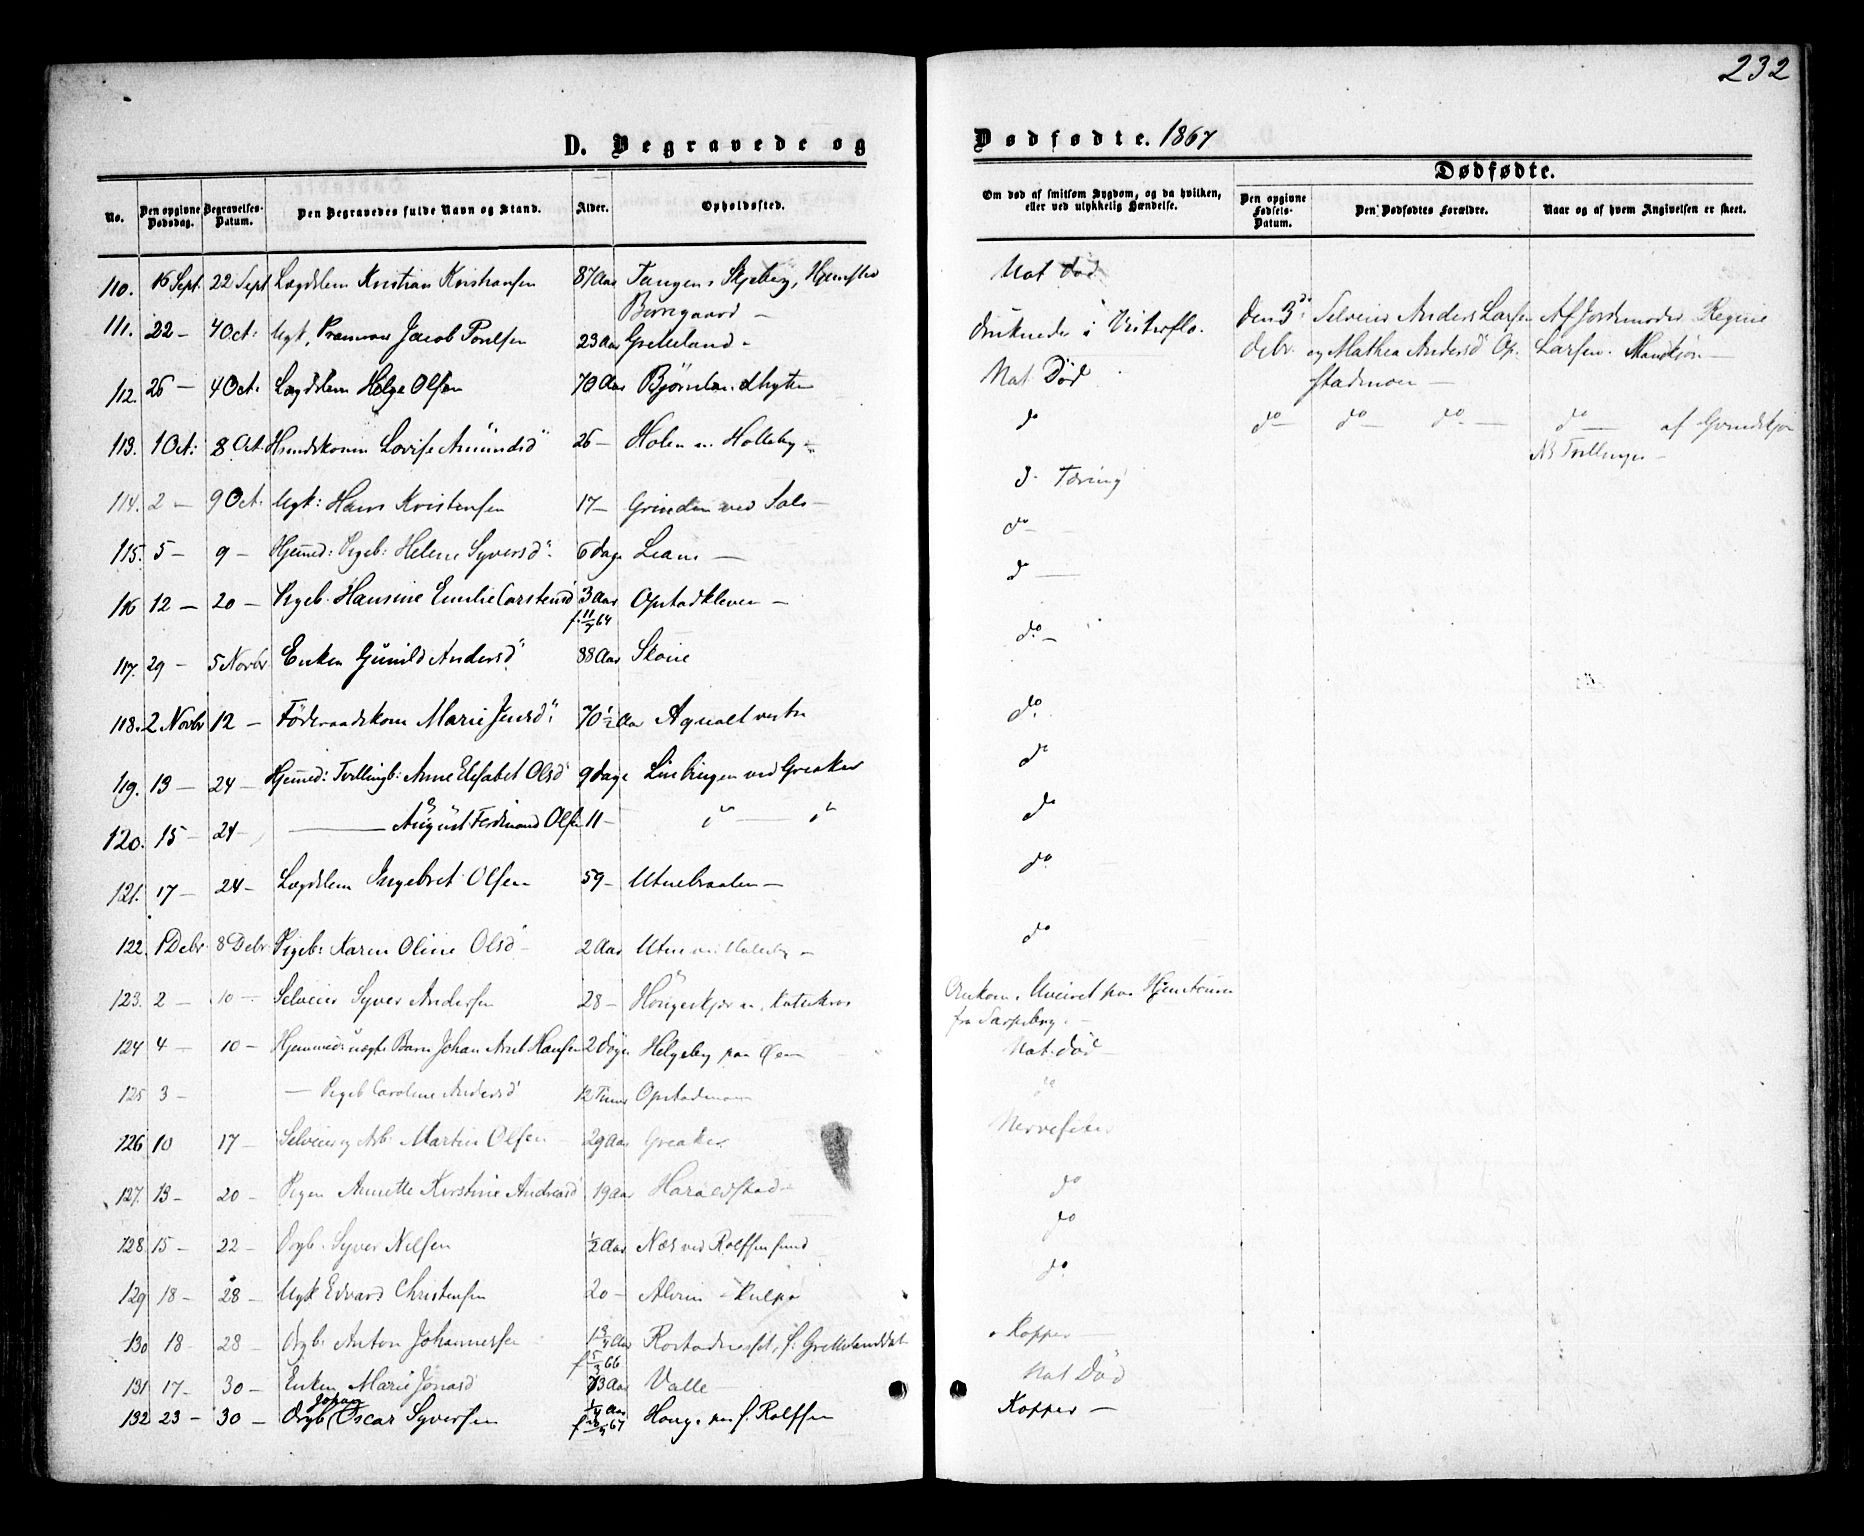 232
D. Begravede og
Dødfødte. 1867
No.
Den opgivne Dødsdag.
Begravelses-Datum.
Den Begravedes fulde Navn og Stand.
Alder.
Opholdssted.
Om død af smitsom Sygdom, og da hvilken, eller ved ulykkelig Hændelse.
Dødfødte.
Den opgivne Fødsels-Datum.
Den Dødfødtes Forældre.
Naar og af hvem Angivelsen er skeet.
110. 16 Sept. 22 Sept Lægdslem Kristian Kristiansen 87 Aar Tangen i Skjeberg, Hjemsted Borregaard — Nat død
111. 22 — 4 Oct: Ugk, Præmour Jacob Poulsen 23 Aar Grelleland — druknede i Visterflo.
112. 26 — 4 Oct: Lægdslem Helge Olsen 70 Aar Bjørnlandhyten Nat Død
113. 1 Oct: 8 Oct. Huuskonen Lovise Amundsd 26 — Holen u. Holleby — do
114. 2 — 9 Oct. Ugk: Hans Kristensen 17 — Grinden ved Sols — Tæring
115. 5 — 9 — Hjemed: Pigeb: Helene Syversd 6 dage Leane — do —
116 12 — 20 — Pigeb. Hansine Emilie Carstensd 3 Aar f. 11/7 64 Opstadkleven — do —
117. 29 — 5 Novbr Enken Gunild Andersd 88 Aar Skone do —
118. 2 Novbr 12 — Føderaadskone Marie Jensd: 70 1/2 Aar Agnalt vestre do.
119. 13 — 24 — Hjemed: Tvillingb: Anne Elisabet Olsd 9 dage Linbingen ved Greaker do
120. 15 — 24 — — August Ferdinand Olsen 11 — " — " do
121. 17 — 24 — Lægdslem Ingebret Olsen 59 — Utnebraaten — do.
122. 1 Debr 8 Debr Pigeb: Karen Oline Olsd 2 Aar Utne u. Holleby — do
123. 2 — 10 — Selveier Syver Andersen 28 — Omkom i Uveiret paa Hjemturen fra Sarpsborg. —
124 4 — 10 — Hjemmed: uægte Barn Johan Arnt Hansen 2 Døgn Helgeby paa Øen Nat. død
125 3 — — Pigeb Caroline Andersd 12 Timer Opstadmoen do
126 10 17 — Selveier og Arb. Martin Olsen 29 Aar Greaker Nervefeber
127. 13 — 20 — Pigen Annette Kirstine Andreasd 19 Aar Haraldstad — do
128. 15 — 22 — Drgb. Syver Nilsen 1/2 Aar Næs ved Rolfsøsund do
129 18 — 28 — Ugk Edvard Christensen 20 — Alvim — Kulpe do.
130 18 — 28 — Drgb. Anton Johannessen 1 3/4 Aar f 5/3 66 Kopper —
131 17 — 30 — Enken Marie Jonasd 73 Aar Valle — Nat Død
132 23 — 30 — Drgb, Johan Oscar Syversen 1/4 Aar Houge paa f. Rolfsøen Kopper —
den 3die debr.
Selveier Anders Larsen og Mathea Andersd Opstadmoen —
Af Jordemoder Regine Larsen. Mandkjøn —
do — do — do — do — af Qvindekjøn
NB Tvillinger —